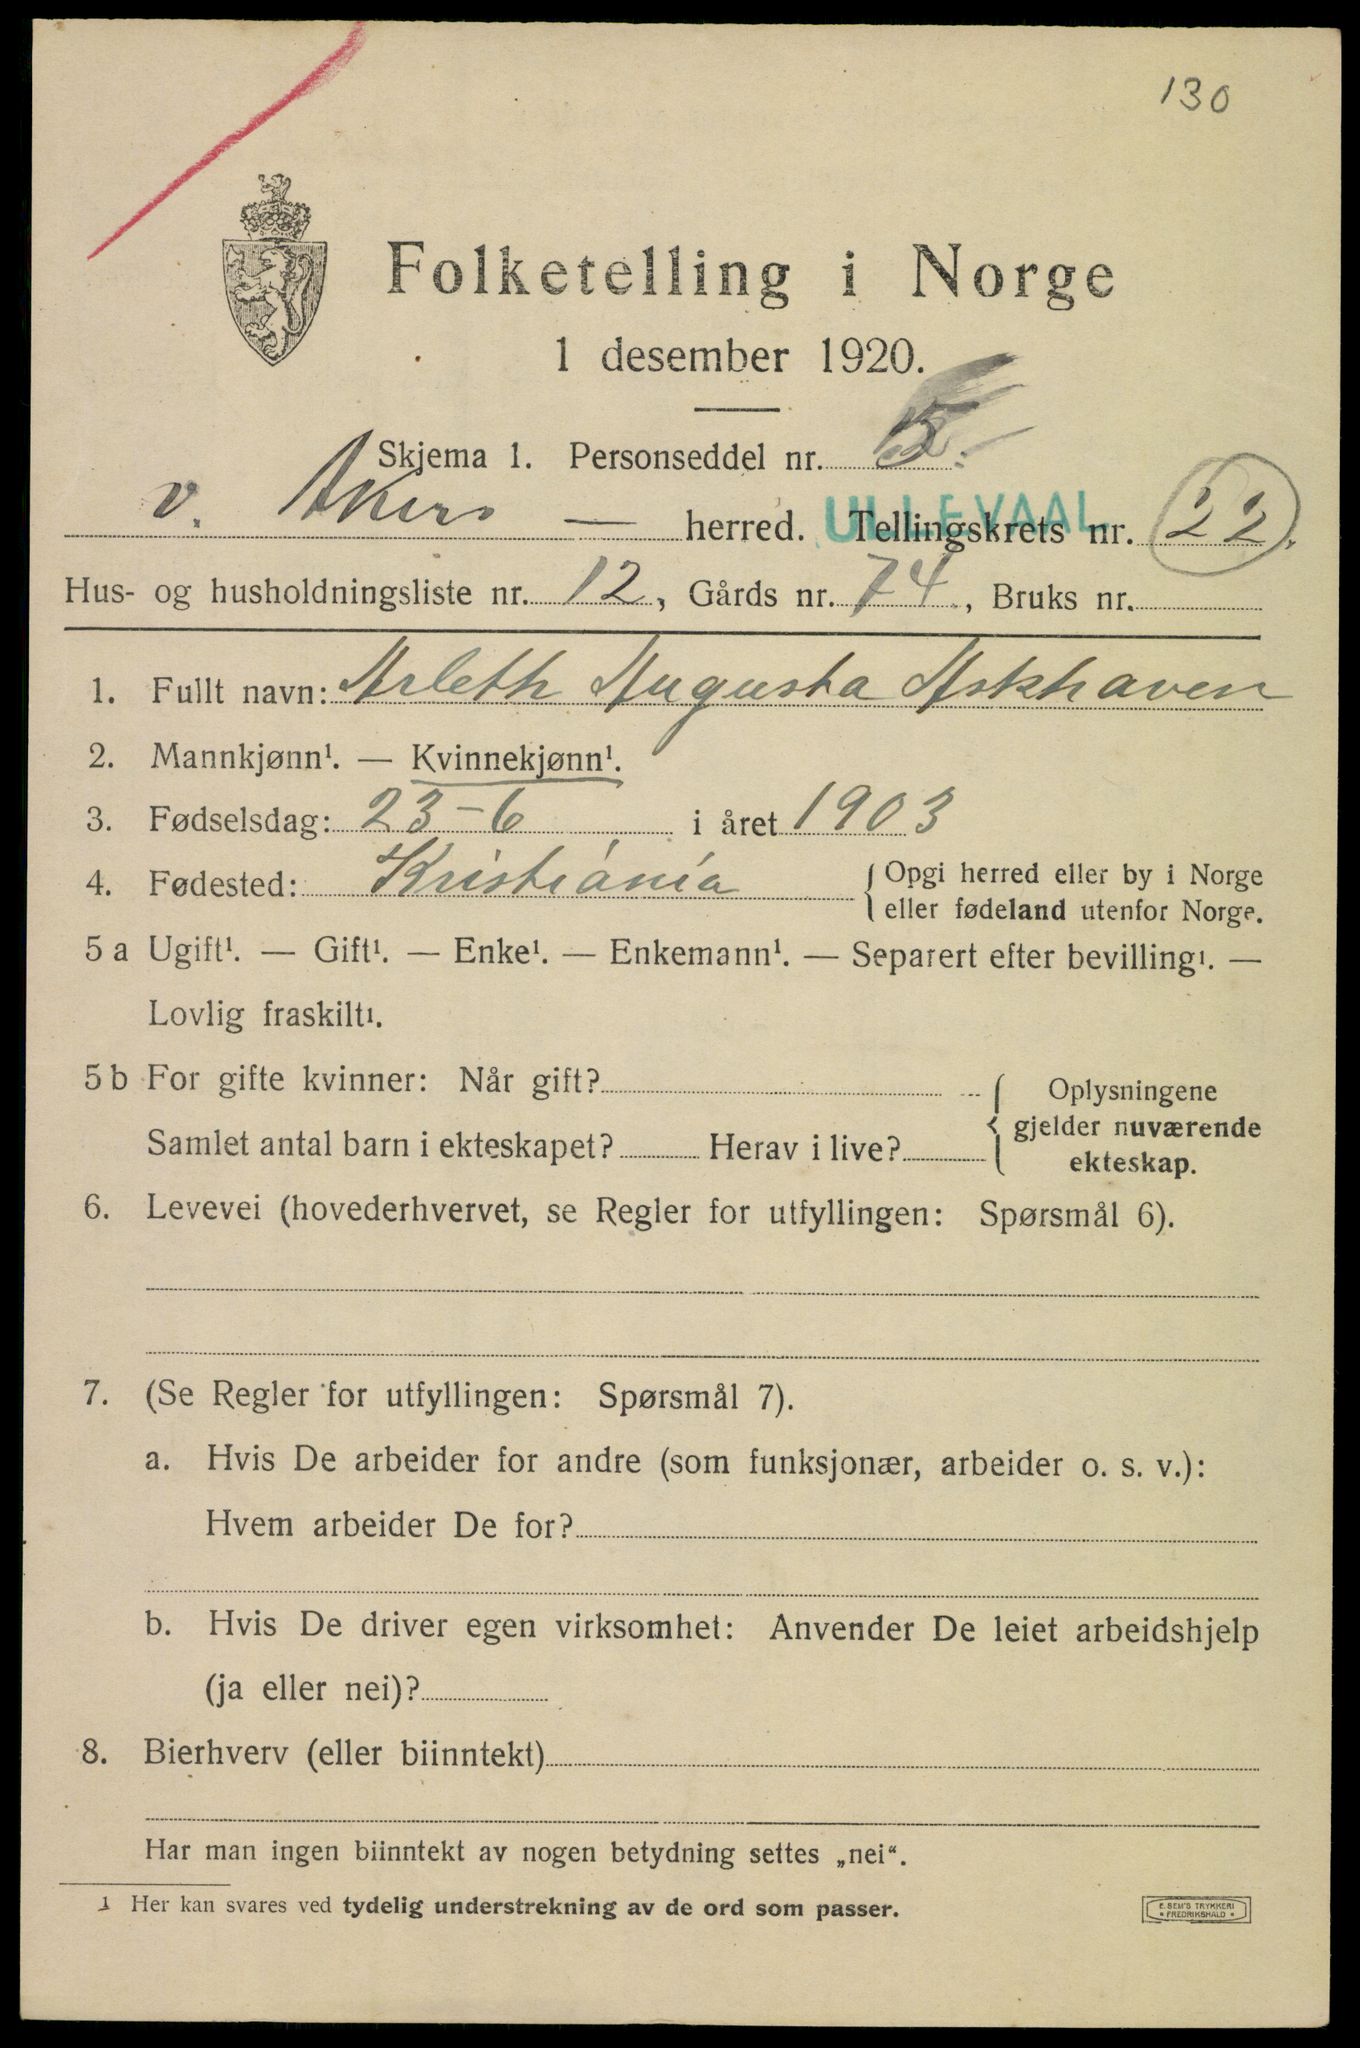 130
Folketelling i Norge
1 desember 1920.
Skjema 1. Personseddel nr. 5.
v. Akers — herred. ULLEVAAL Tellingskrets nr. 22.
Hus- og husholdningsliste nr. 12, Gårds nr. 74., Bruks nr.
1. Fullt navn: Arleth Augusta Askhaven
2. Mannkjønn¹. — Kvinnekjønn¹.
3. Fødselsdag: 23-6 i året 1903
4. Fødested: Kristiania { Opgi herred eller by i Norge
eller fødeland utenfor Norge.
5 a Ugift¹. — Gift¹. — Enke¹. — Enkemann¹. — Separert efter bevilling¹. —
Lovlig fraskilt¹.
5 b For gifte kvinner: Når gift? { Oplysningene
gjelder nuværende
Samlet antal barn i ekteskapet? Herav i live?
ekteskap.
6. Levevei (hovederhvervet, se Regler for utfyllingen: Spørsmål 6).
7. (Se Regler for utfyllingen: Spørsmål 7).
a. Hvis De arbeider for andre (som funksjonær, arbeider o. s. v.):
Hvem arbeider De for?
b. Hvis De driver egen virksomhet: Anvender De leiet arbeidshjelp
(ja eller nei)?
8. Bierhverv (eller biinntekt)
Har man ingen biinntekt av nogen betydning settes „nei“.
1 Her kan svares ved tydelig understrekning av de ord som passer.
E. SEM'S TRYKKERI
* FREDRIKSHALD *